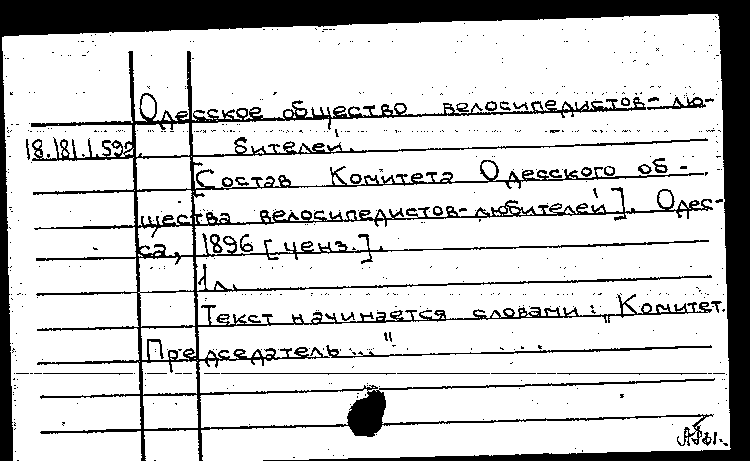 Одесское общество велосипедистов-лю-
18.181.1.592. бителей.
[Состав Комитета Одесского об-
щества велосипедистов-любителей]. Одес-
са, 1896 [ценз.].
1 л.
Текст начинается словами: „Комитет.
Председатель..."